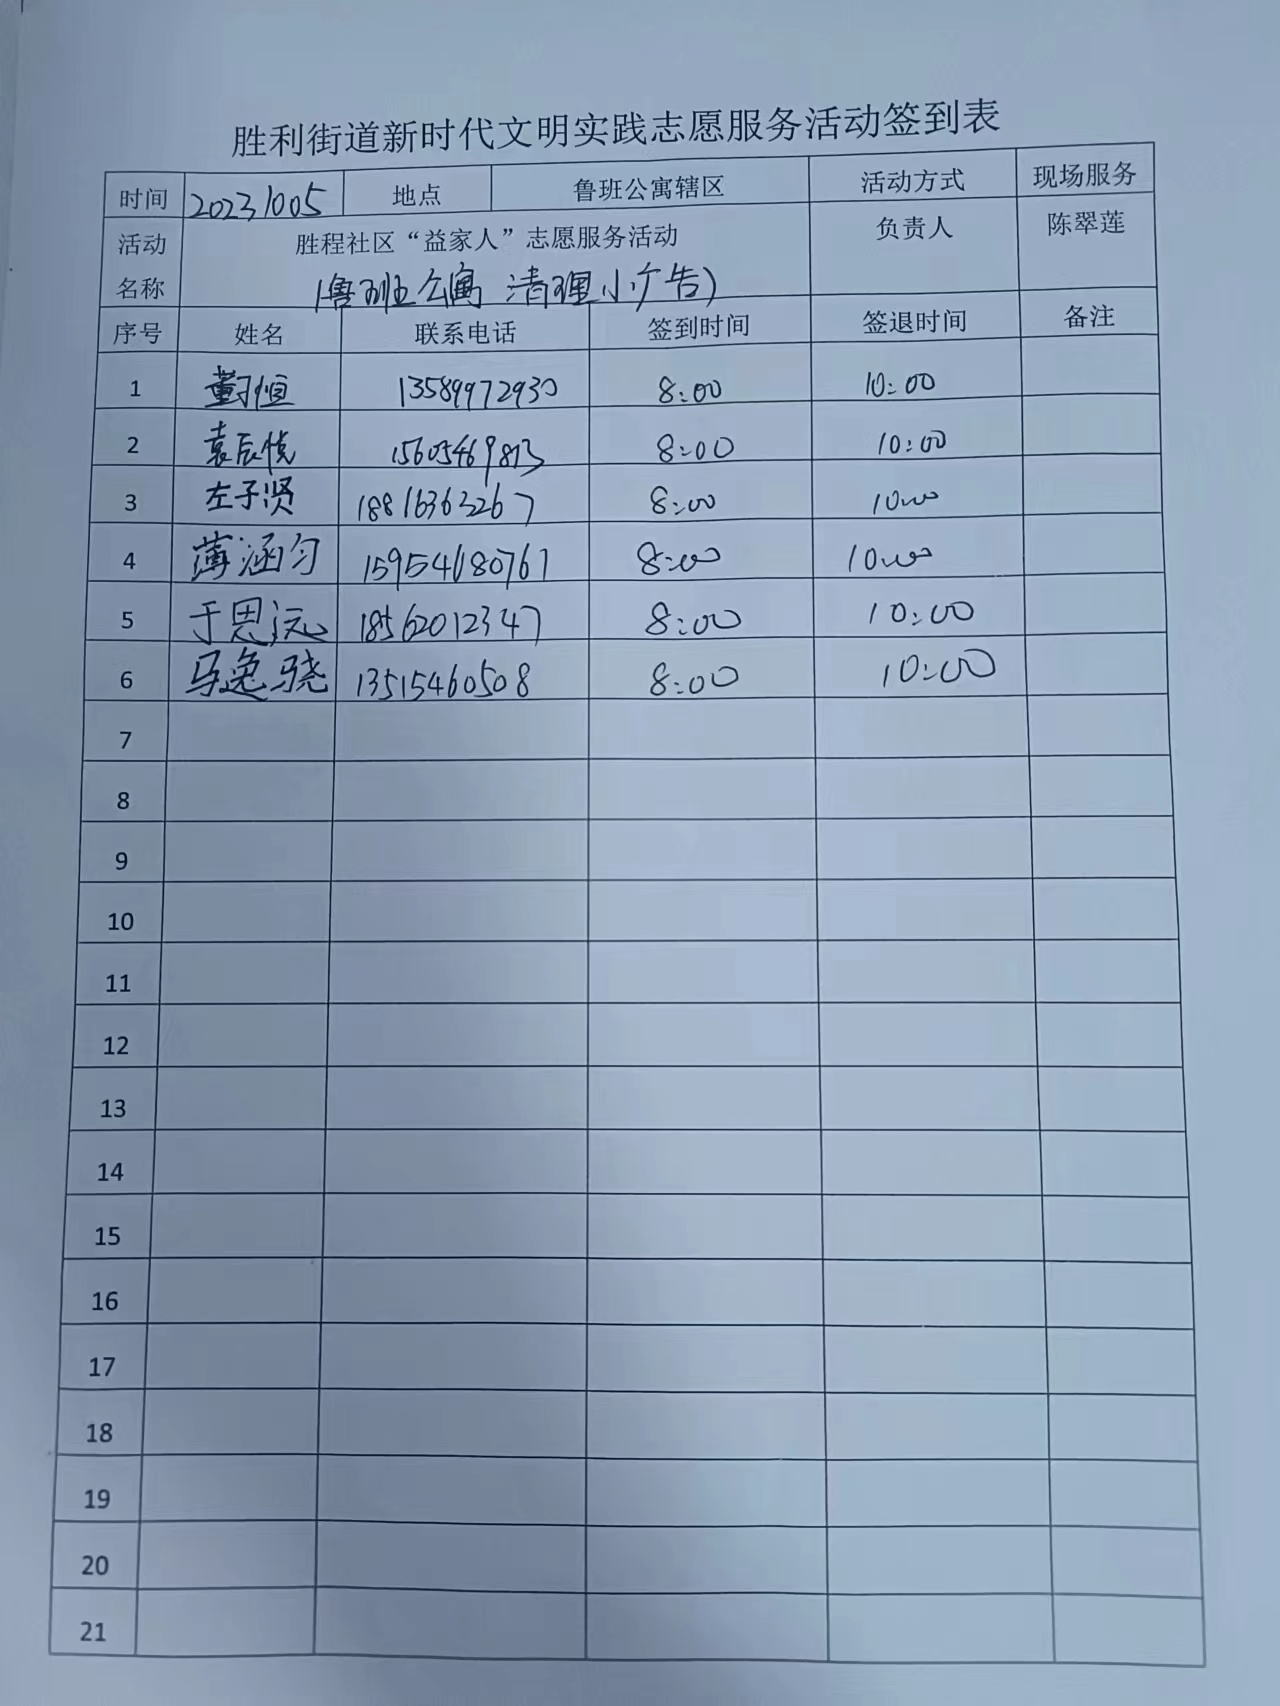 胜利街道新时代文明实践志愿服务活动签到表
时间 20231005 地点 鲁班公寓辖区 活动方式 现场服务
活动名称 胜程社区“益家人”志愿服务活动 负责人 陈翠莲
(鲁班公寓 清理小广告)
序号 姓名 联系电话 签到时间 签退时间 备注
1 董子恒 13589972930 8:00 10:00
2 袁辰悦 15605469813 8:00 10:00
3 左子贤 18816363267 8:00 10:00
4 薄涵匀 15954680767 8:00 10:00
5 于恩沅 18562012347 8:00 10:00
6 马逸骁 13515460508 8:00 10:00
7
8
9
10
11
12
13
14
15
16
17
18
19
20
21